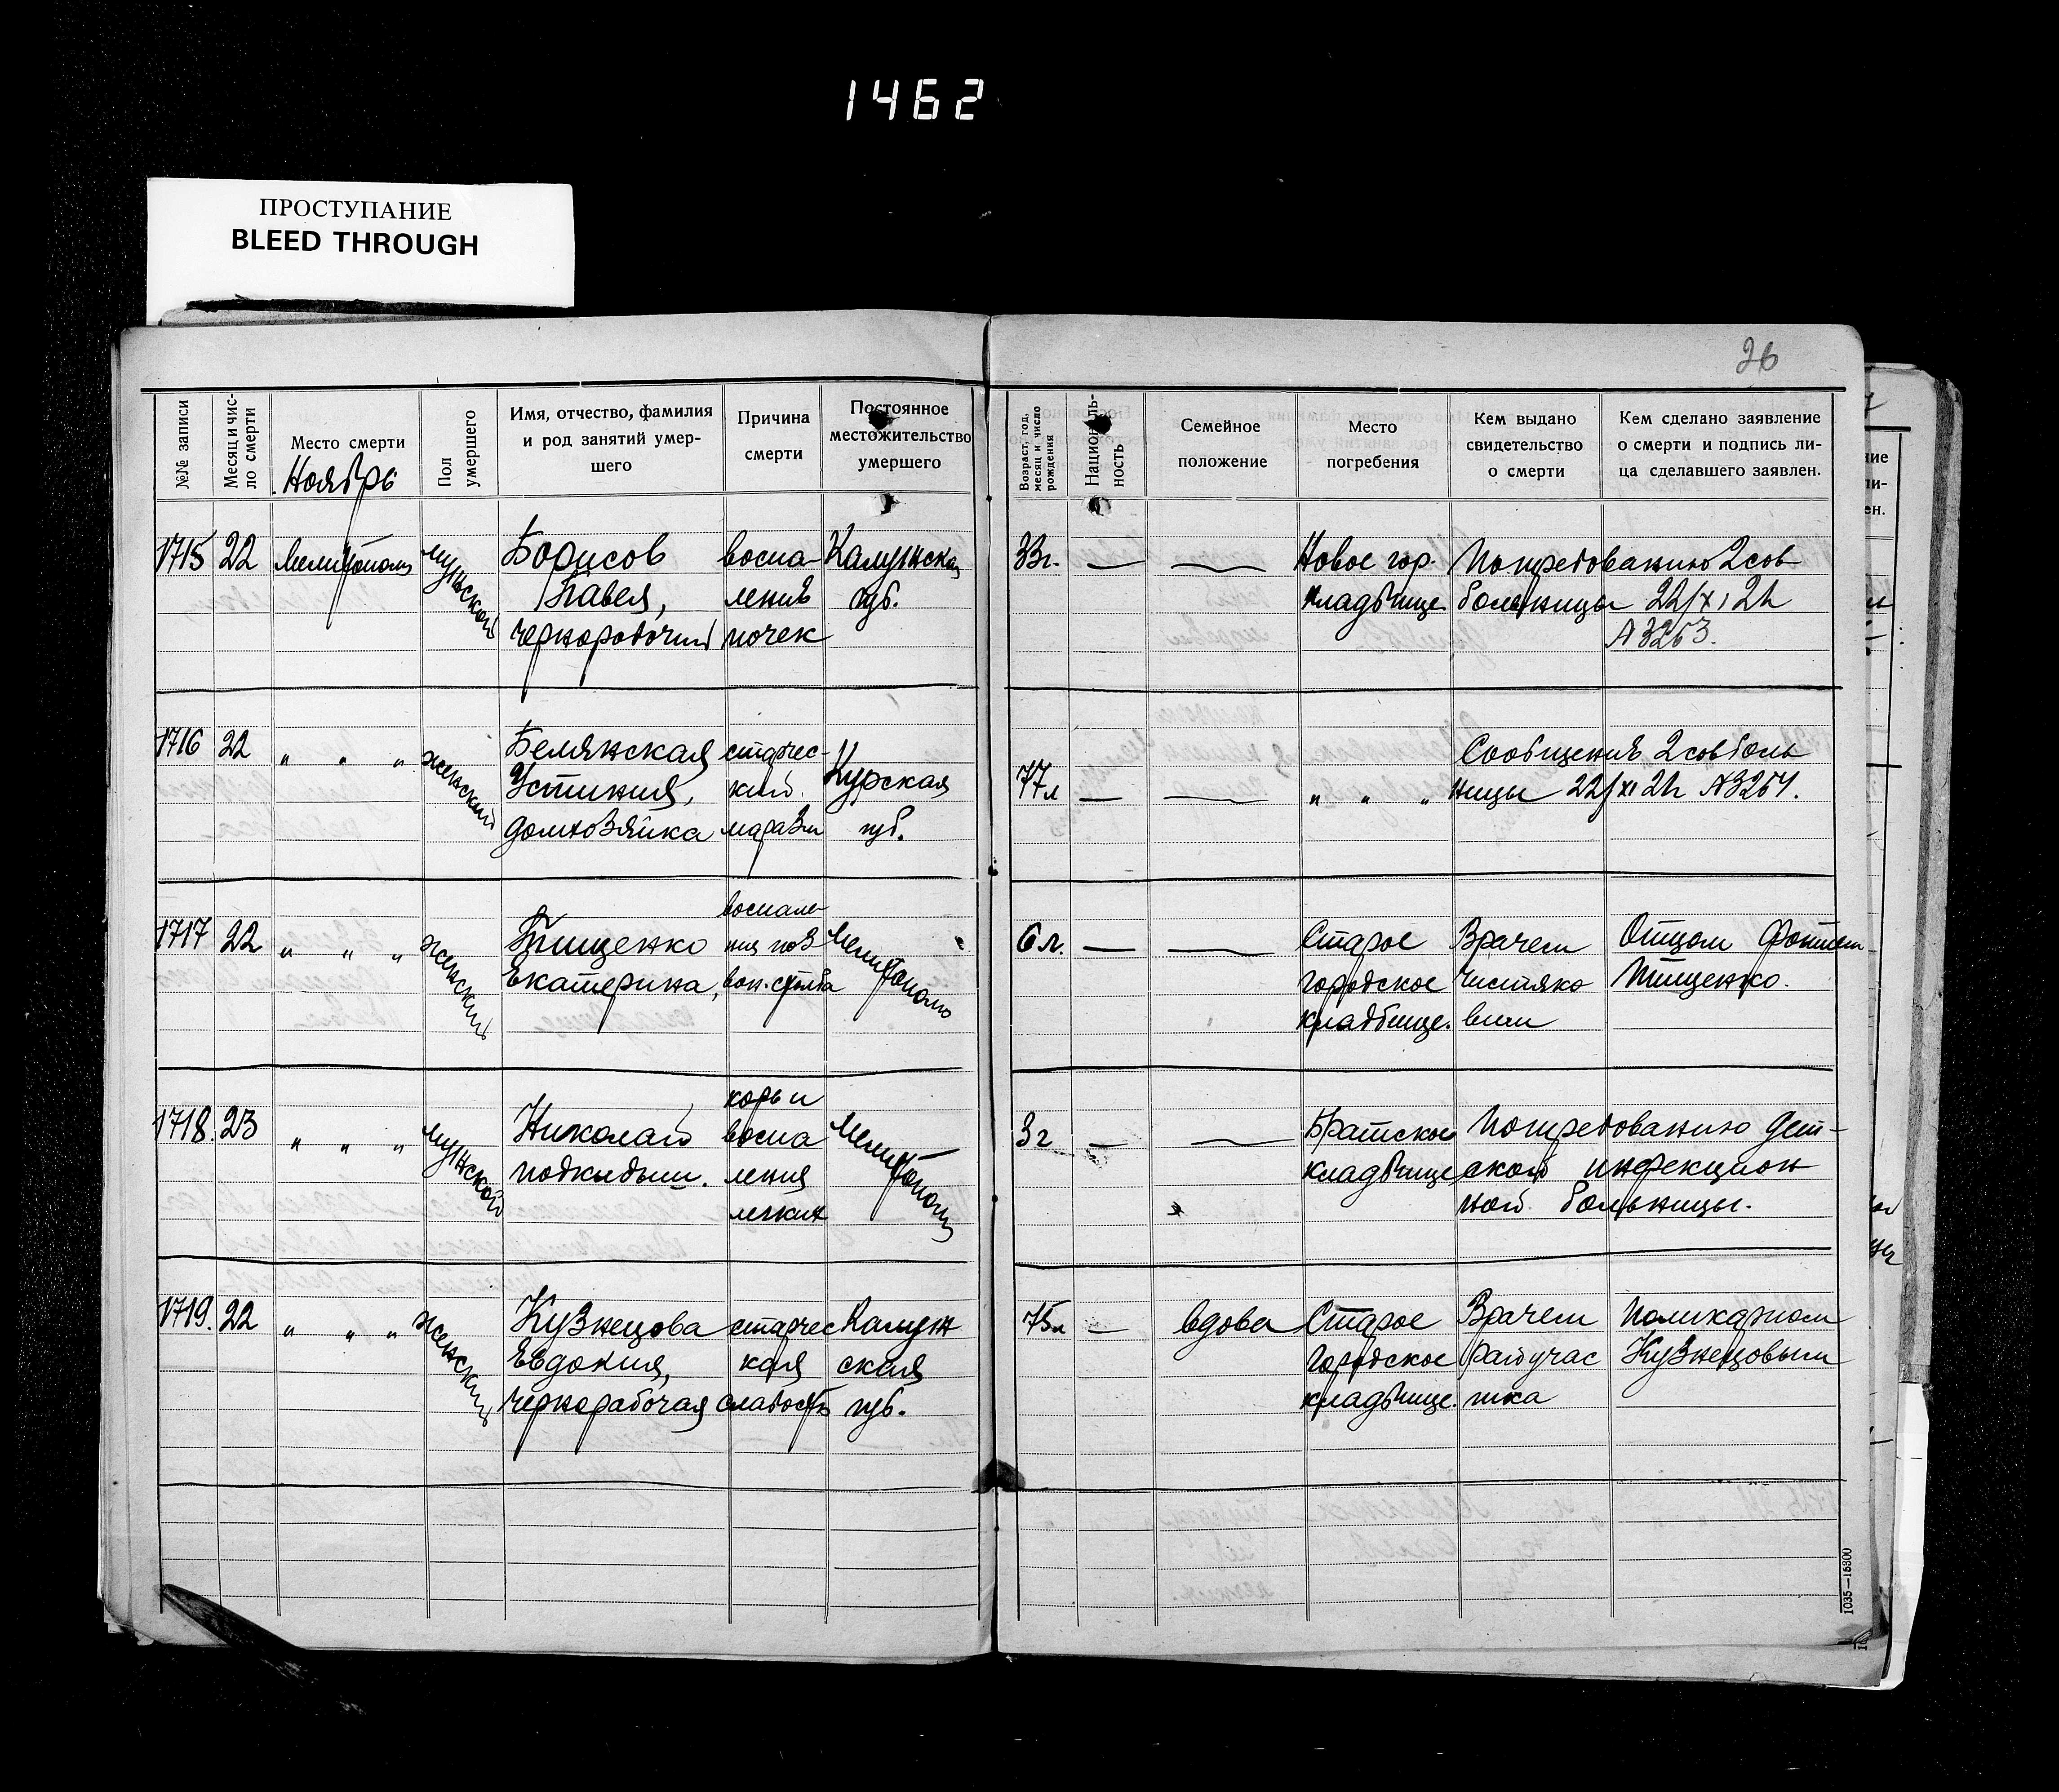 1462
ПРОСТУПАНИЕ
BLEED THROUGH
26
№№ записи
Месяц и чис-
ло смерти
Место смерти
Ноябрь
Пол
умершего
Имя, отчество, фамилия
и род занятий умер-
шего
Причина
смерти
Постоянное
местожительство
умершего
Возраст, год,
месяц и число
рождения
Националь-
ность
Семейное
положение
Место
погребения
Кем выдано
свидетельство
о смерти
Кем сделано заявление
о смерти и подпись ли-
ца сделавшего заявлен.
1715 22 Мелитополь мужской
Борисов
Павел,
чернорабочий
воспа-
ление
почек
Калужская
губ.
33г. — —
Новое гор.
кладбище
По требованию 2 сов
больницы 22/XI 21
№ 3263.
1716 22 " " " женский
Белянская
Устиния,
домхозяйка
старчес-
кий
маразм
Курская
губ.
77л — — " " "
Сообщение 2 сов боль
ницы 22/XI 21 № 3264.
1717 22 " " " женский
Тищенко
Екатерина,
воспале-
ния поз
вон. столба
Мелитополь
6 л. — —
Старое
городское
кладбище.
Врачем
Чистяко
вым
Отцом
Тищенко.
1718. 23 " " " мужской
Николай
подкидыш.
корь и
воспа
ления
легких
Мелитополь
3 г — —
Братское
кладбище
По требованию дет-
ской инфекцион
ной больницы.
1719. 22 " " " женский
Кузнецова
Евдокия,
чернорабочая
старчес
кая
слабость
Калуж
ская
губ.
75л — вдова
Старое
городское
кладбище.
Врачем
райучас
тка
Поликарпом
Кузнецовым
1035—15300